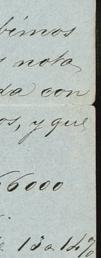 bimos
nota
da con
os, y que
6000
13 a 14%